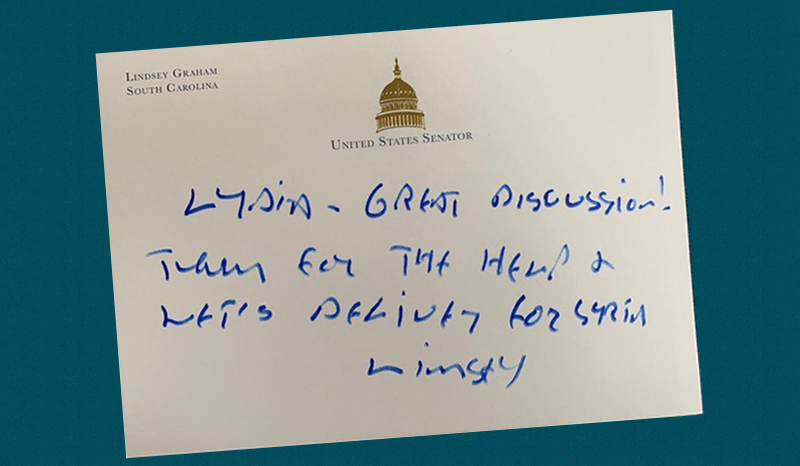 LINDSEY GRAHAM
SOUTH CAROLINA
UNITED STATES SENATOR
LYDIA - GREAT DISCUSSION!
FOR THE HELP &
LET'S DELIVER FOR SYRIA
LINDSEY